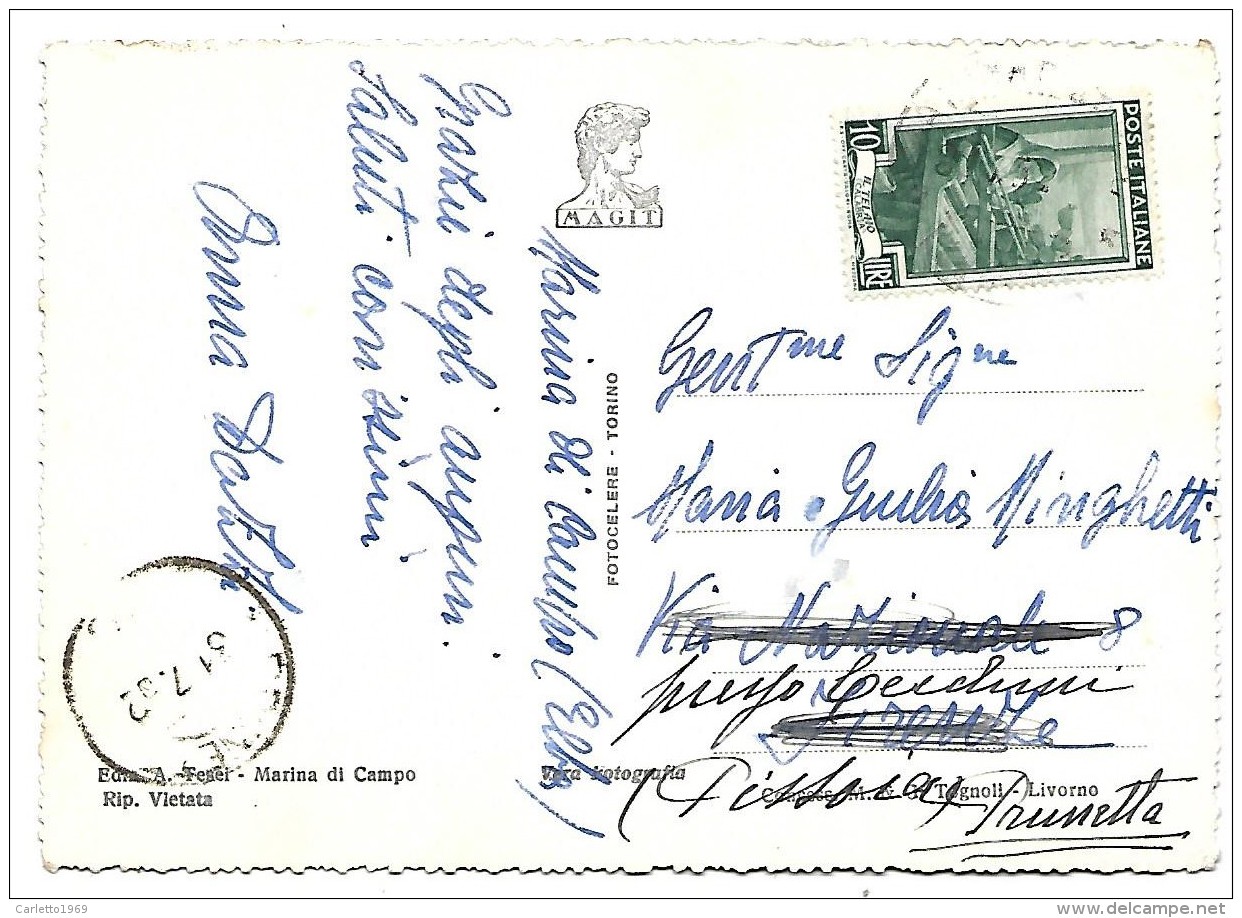 Marina di Campo (Elba)
Grazie degli auguri.
Saluti carissimi
Anna
MAGIT
FOTOCELERE - TORINO
POSTE ITALIANE
10
LIRE
IL TELAIO
CALABRIA
Gent.me Sig.ne
Maria e Giulia Minghetti
Via Nazionale 8
presso
Firenze
(Pistoia) Prunetta
31.7.52
Ediz. A. Tesei - Marina di Campo
Rip. Vietata
Vera Fotografia
Concess. M. & S. Tognoli - Livorno
Carletto1969
delcampe.net